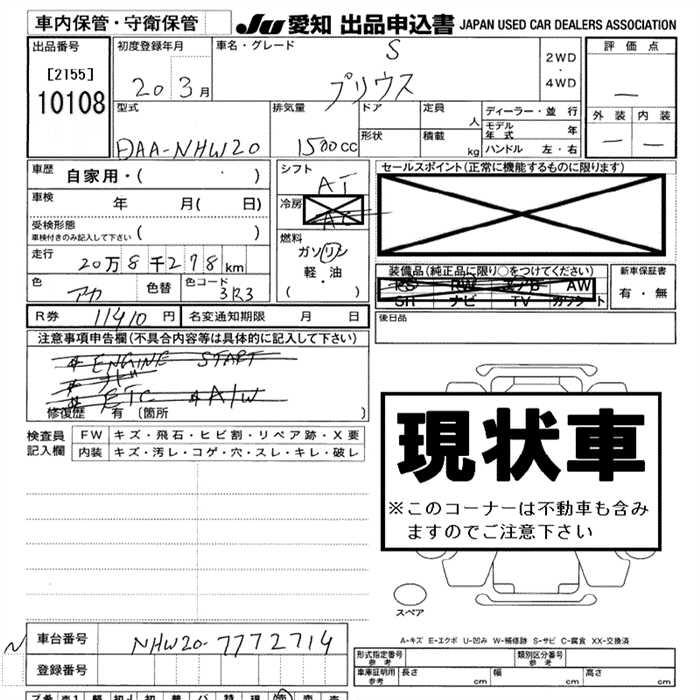 車内保管・守衛保管
JU 愛知 出品申込書 JAPAN USED CAR DEALERS ASSOCIATION
出品番号
[2155]
10108
初度登録年月
20 3月
車名・グレード
S
プリウス
2WD
・
4WD
評価点
—
外装 内装
— —
型式
DAA-NHW20
排気量
1500cc
ドア
定員
人
形状
積載
kg
ディーラー・並行
モデル年式 年
ハンドル 左・右
車歴 自家用・( )
車検 年 月( 日)
受検形態
車検付きのみ記入して下さい ( )
走行 20万8千278km
色 アカ
色替
色コード 3R3
シフト
AT
冷房
AC
燃料
ガソリン
軽・油
( )
セールスポイント(正常に機能するものに限ります)
装備品(純正品に限り○をつけてください)
PS PW エアB AW
GH ナビ TV ガソクート
新車保証書
有・無
後日品
R券 11410円
名変通知期限 月 日
注意事項申告欄(不具合内容等は具体的に記入して下さい)
* ENGINE START
* ナビ
* ETC * A/W
修復歴 有 [箇所 )
検査員
記入欄
FW キズ・飛石・ヒビ割・リペア跡・X要
内装 キズ・汚レ・コゲ・穴・スレ・キレ・破レ
現状車
※このコーナーは不動車も含み
ますのでご注意下さい
スペア
A-キズ E-エクボ U-凹み W-補修跡 S-サビ C-腐食 XX-交換済
車台番号 NHW20-7772714
登録番号
形式指定番号
参考
類別区分番号
参考
車庫証明用
参考
長さ cm 幅 cm 高さ cm